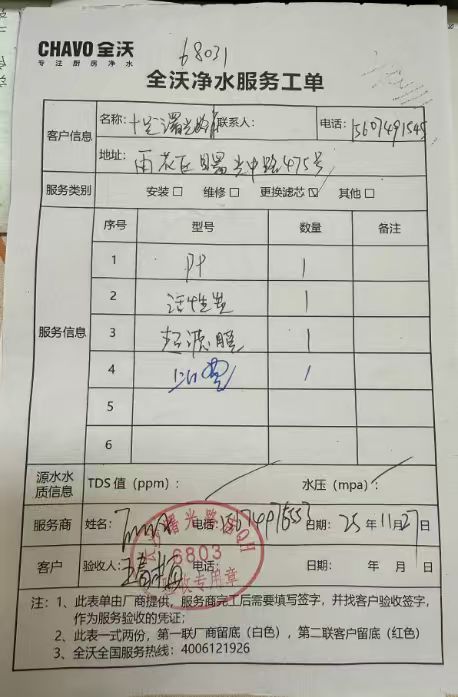 CHAVO 全沃
专注厨房净水
68031
全沃净水服务工单
客户信息
名称: 联系人: 电话: 15607491545
地址: 雨花区曙光中路475号
服务类别 安装□ 维修□ 更换滤芯☑ 其他□
服务信息
序号 型号 数量 备注
1 PP 1
2 活性炭 1
3 超滤膜 1
4 1
5
6
源水水质信息 TDS 值(ppm): 水压(mpa):
服务商 姓名: 电话: 日期: 25年11月27日
客户 验收人: 电话: 日期: 年 月 日
曙光路
6803
专用章
注: 1、此表单由厂商提供,服务商完工后需要填写签字,并找客户验收签字,
作为服务验收的凭证;
2、此表一式两份,第一联厂商留底(白色),第二联客户留底(红色)
3、全沃全国服务热线:4006121926